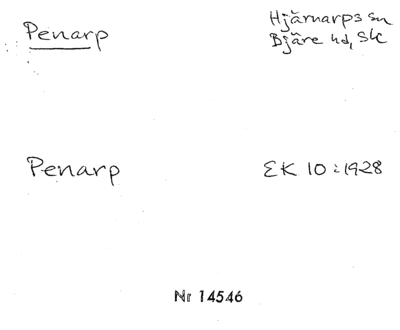 Penarp
Hjärnarps sn
Bjäre hd, Sk
Penarp
EK 10:1928
Nr 14546